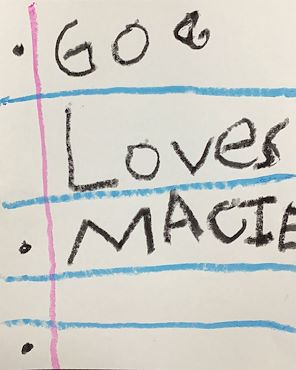 GOd
Loves
MACIE